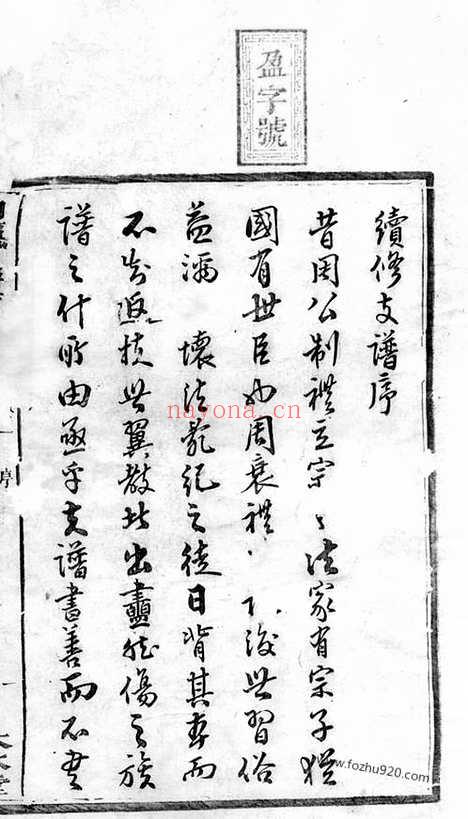 盈字號
續修支譜序
昔周公制禮立宗々法家有宗子猶
國有世臣也周衰禮下後世習俗
益漓壞法亂紀之徒日背其本而
不知返扶世翼教者出盡然傷之族
譜之什所由亟乎支譜書善而不書
序
nayona.cn
www.fozhu920.com